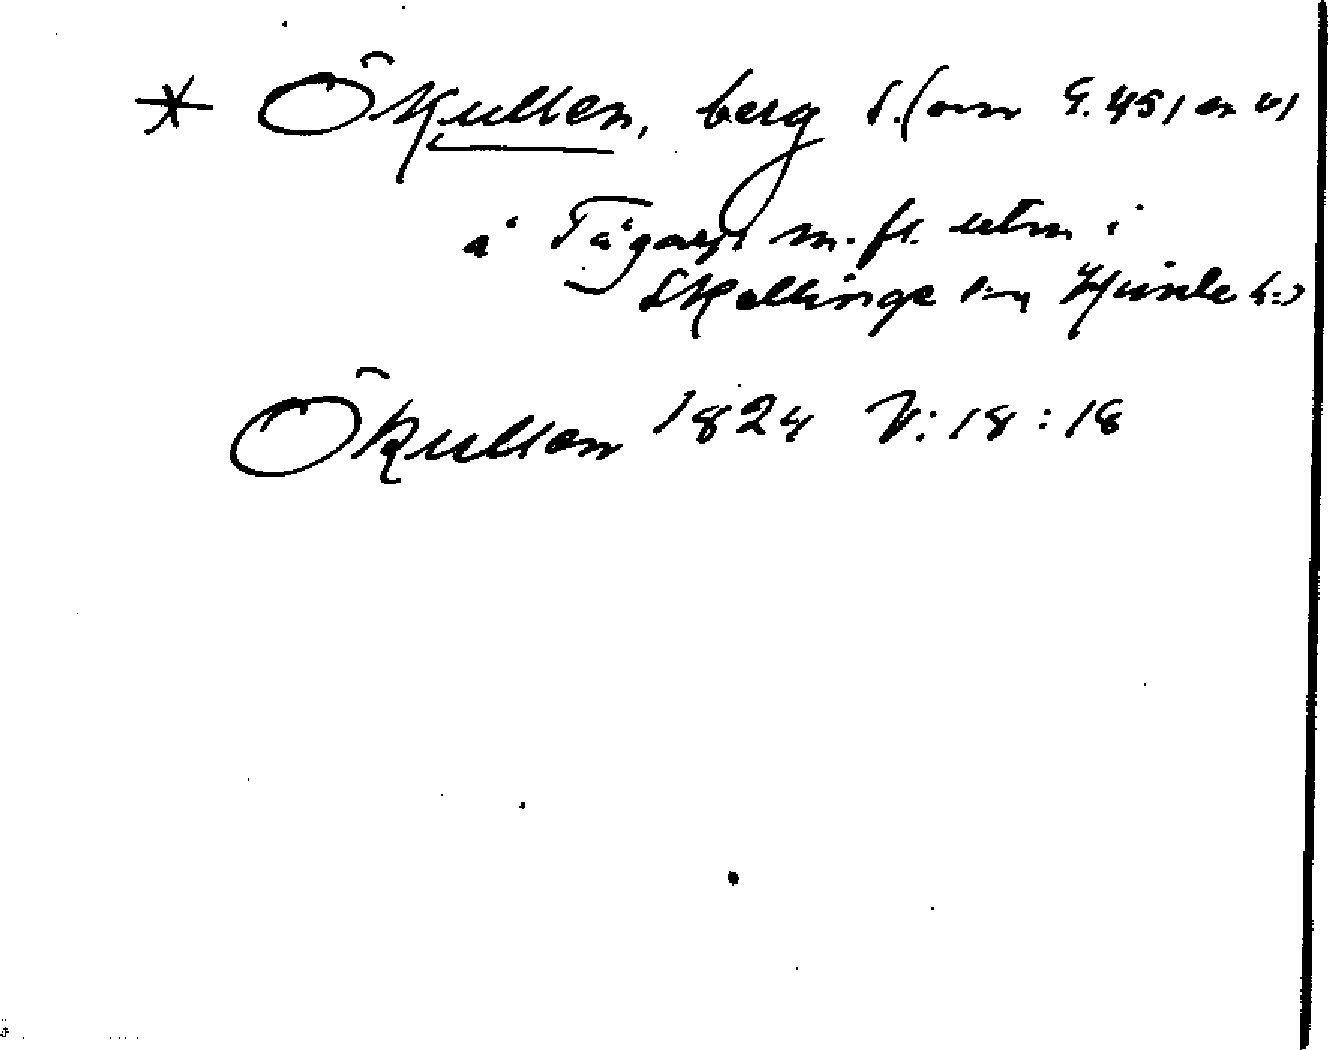 * Ökullen, berg S. (om G. 451 en
å Tågarp m. fl. utm. i
Skällinge sn, Himle h:d
Ökullen 1824 V: 18 : 18